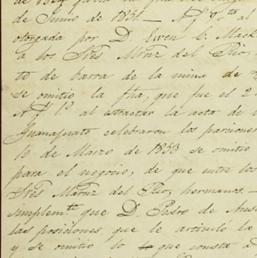 de Junio de 1851.— A f. 8.ª al
otorgada por D. Liven C. Mack
a los Sres Mtnz. del Rio,
to de barra de la mina de
se omitio la fha, que fue el 2
A f. 1.ª al estractar la acta de
Guanajuato celebraron los parcioner
10 de Marzo de 1853 se omitio
para el negocio, de que entre los
Sres Martnz del Rio, hermanos.—
simplemte. que D. Pedro de
las posiciones, que le articuló la
y se omitio lo que consta